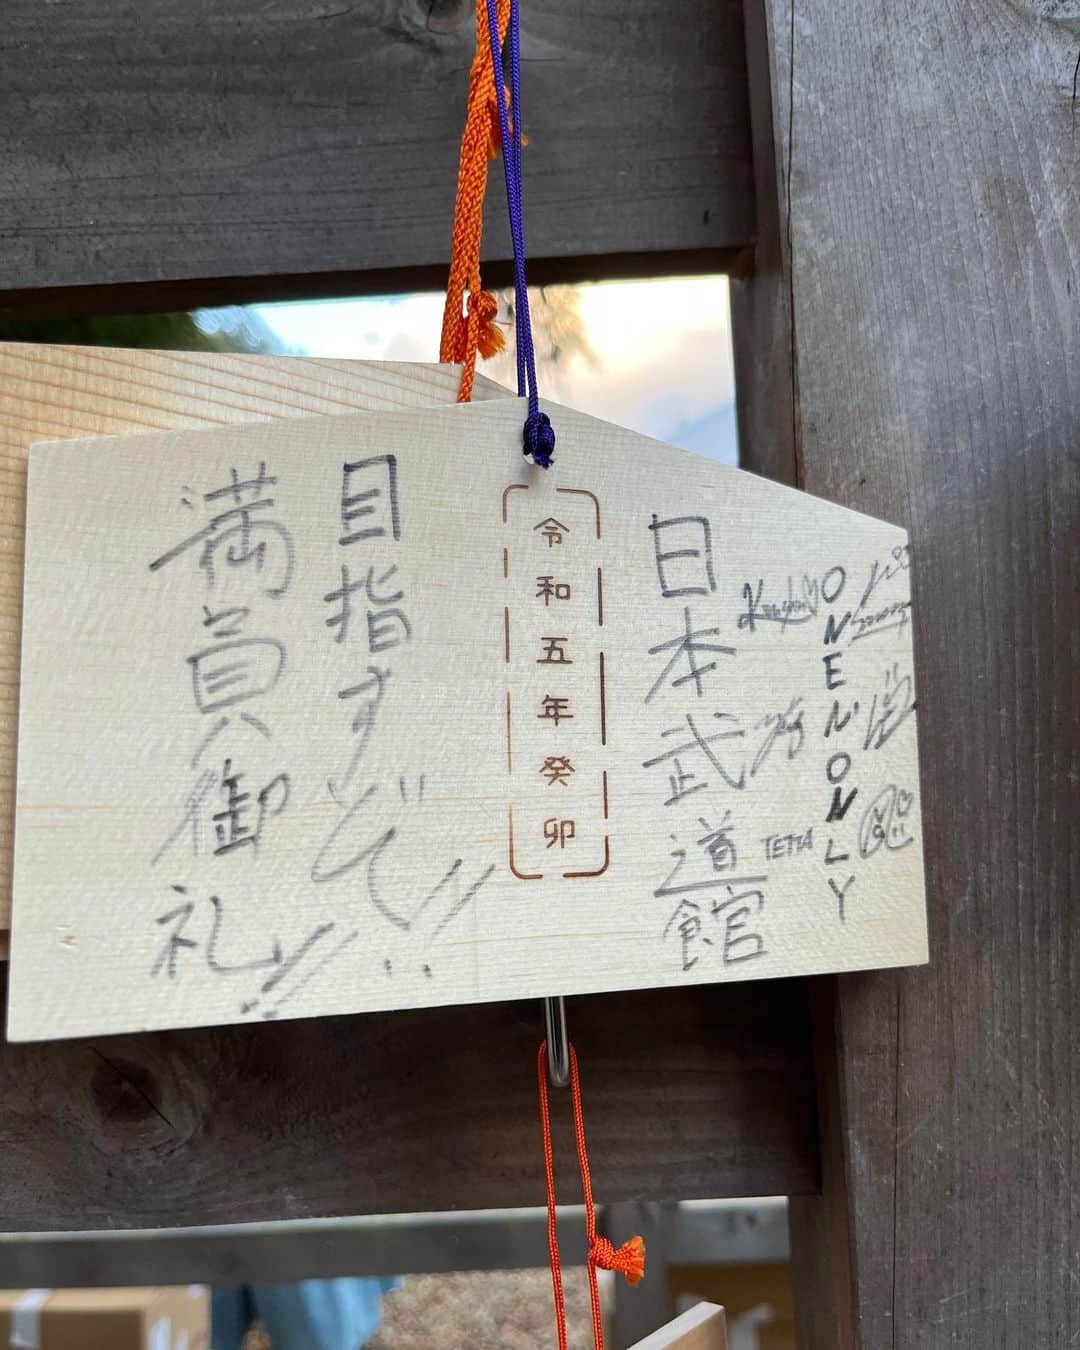 ONE N' ONLY
Kenshin
TETTA
日本武道館
令和五年癸卯
目指すぞ!!
満員御礼!!